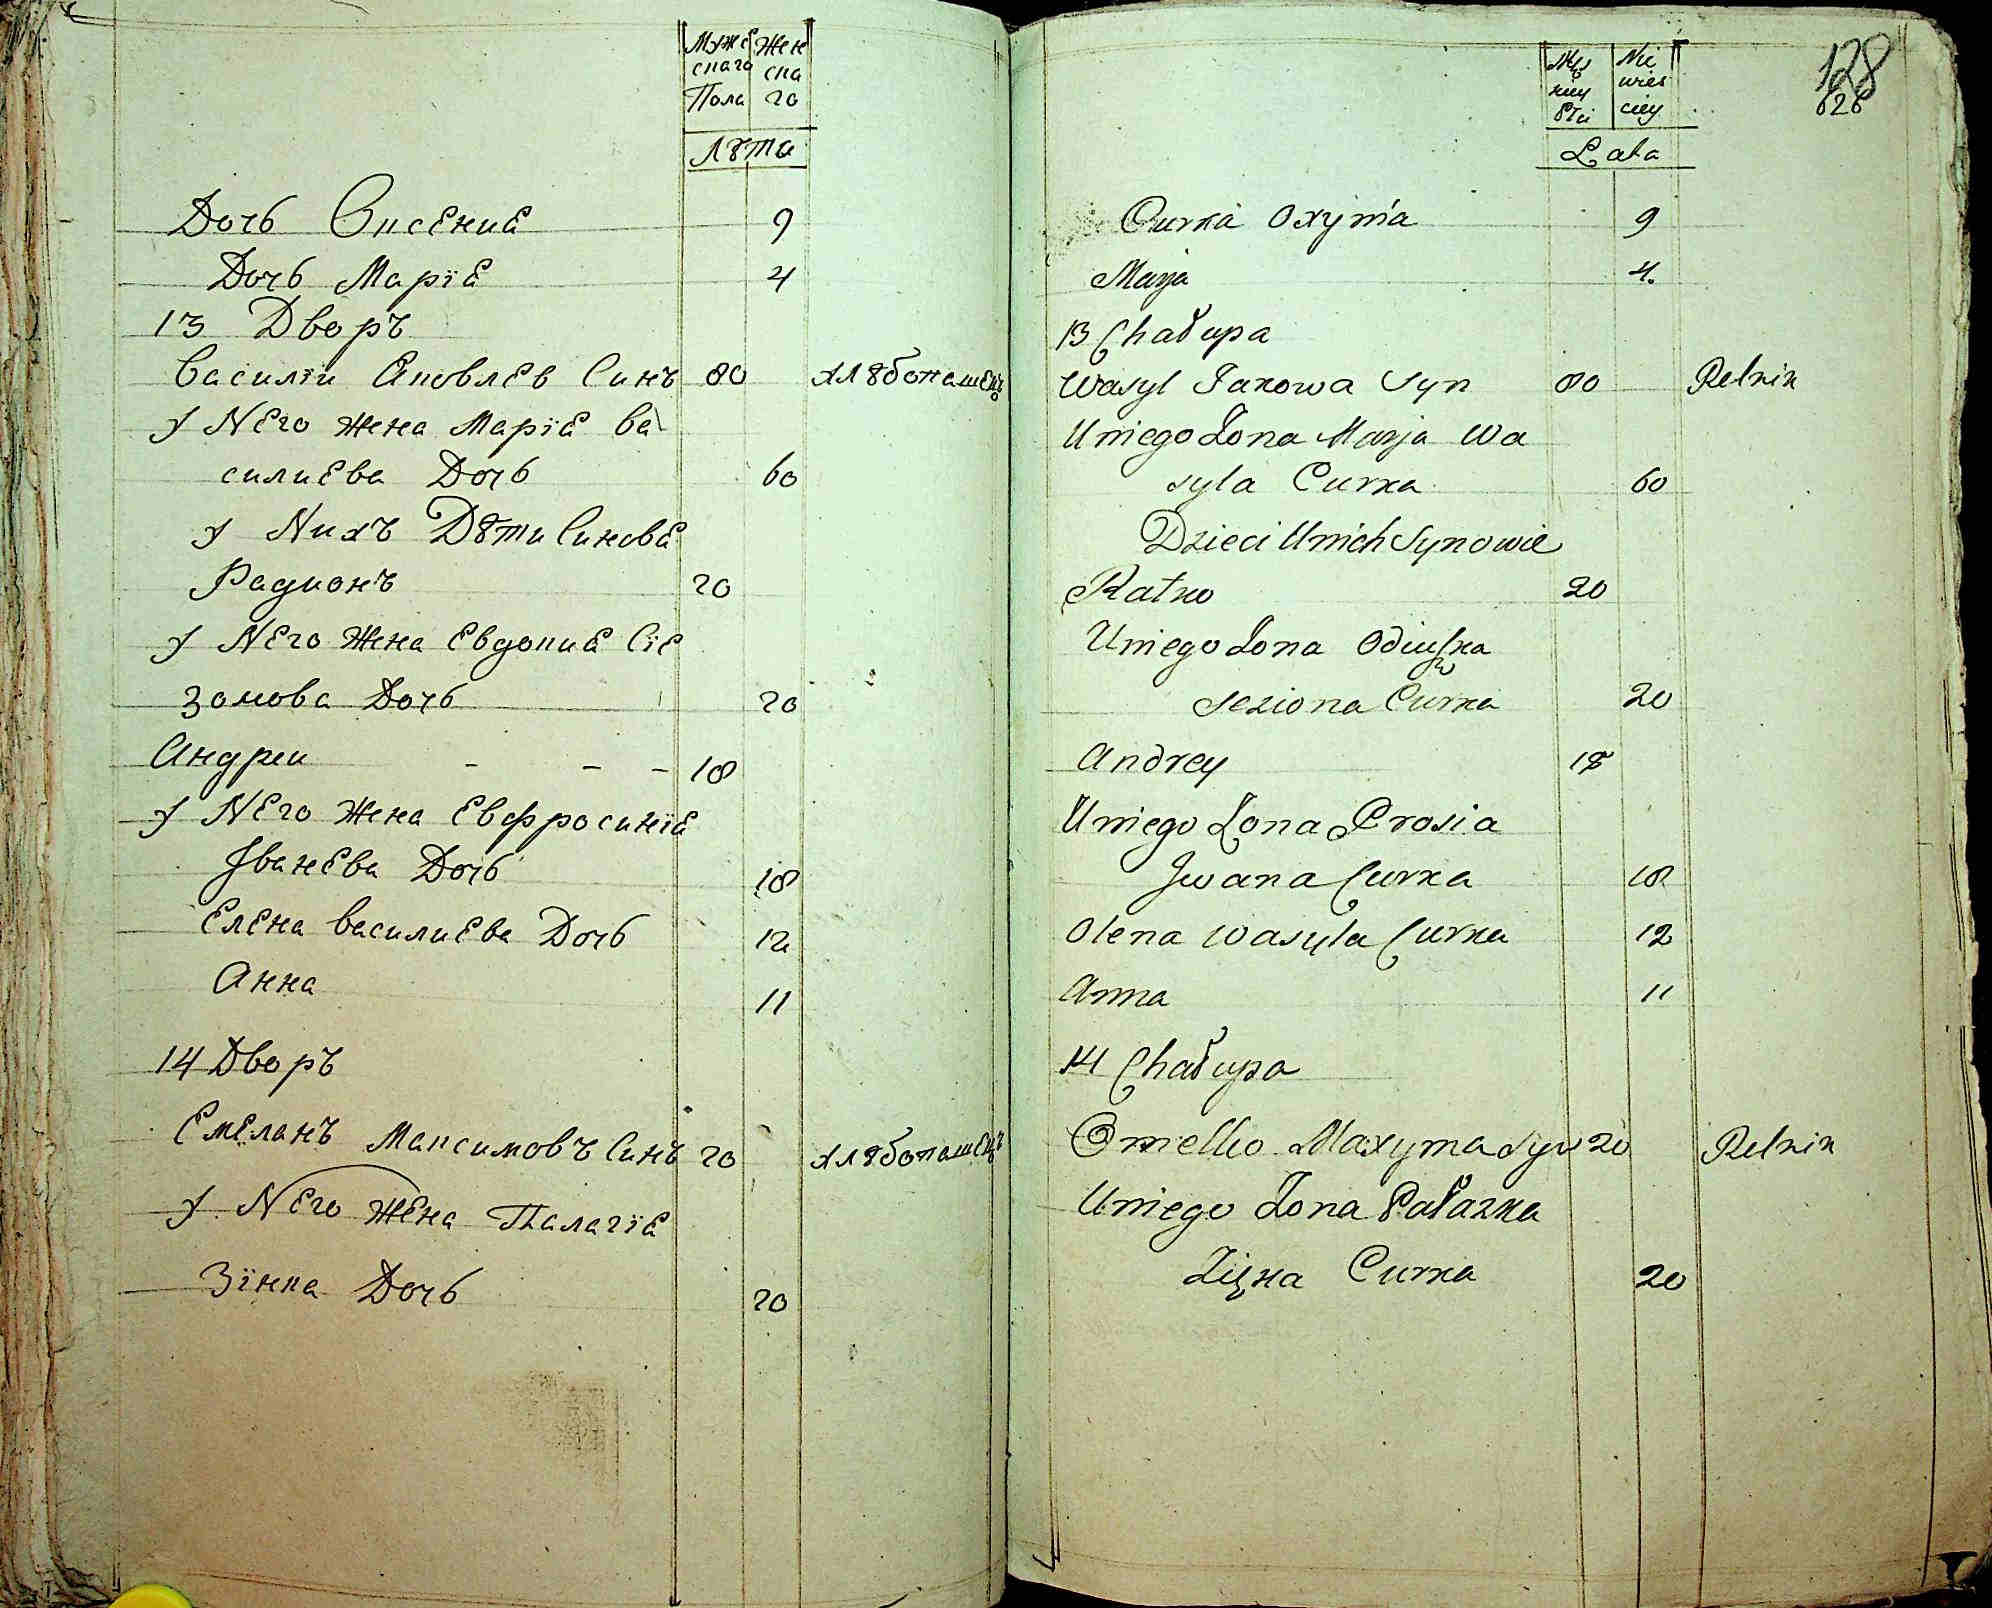 Муже Жен
скаго ска
Пола го
Лѣта
Дочь Оксение 9
Дочь Марїе 4
13 Дворъ
Василїи Яковлев Синъ 80 хлѣбопашецъ
У Него жена Марїе Ва
силиева Дочь 60
У Нихъ Дѣти Синове
Радионъ 20
У Него Жена Евдокие Сїе
зонова Дочь 20
Андреи - - - 18
У Него Жена Евфросинїе
Іванева Дочь 18
Елена Василиева Дочь 12
Анна 11
14 Дворъ
Емеланъ Максимовъ Синъ 20 хлѣбопашецъ
У Него Жена Палагїе
Зїнка Дочь 20
128
626
Nie
wies
ciey
Lata
Curka Oxynia 9
Marja 4.
13 Chałupa
Wasyl Jakowa Syn 80 Relnik
Uniego Żona Marja Wa
syla Curka 60
Dzieci Unich Synowie
Ratko 20
Uniego Żona
Seziona Curka 20
Andrey 18
Uniego Żona Prosia
Jwana Curka 18
Olena Wasyla Curka 12
Anna 11
14 Chałupa
Omelko Maxyma Syn 20 Relnik
Uniego Żona Pałazka
Curka 20